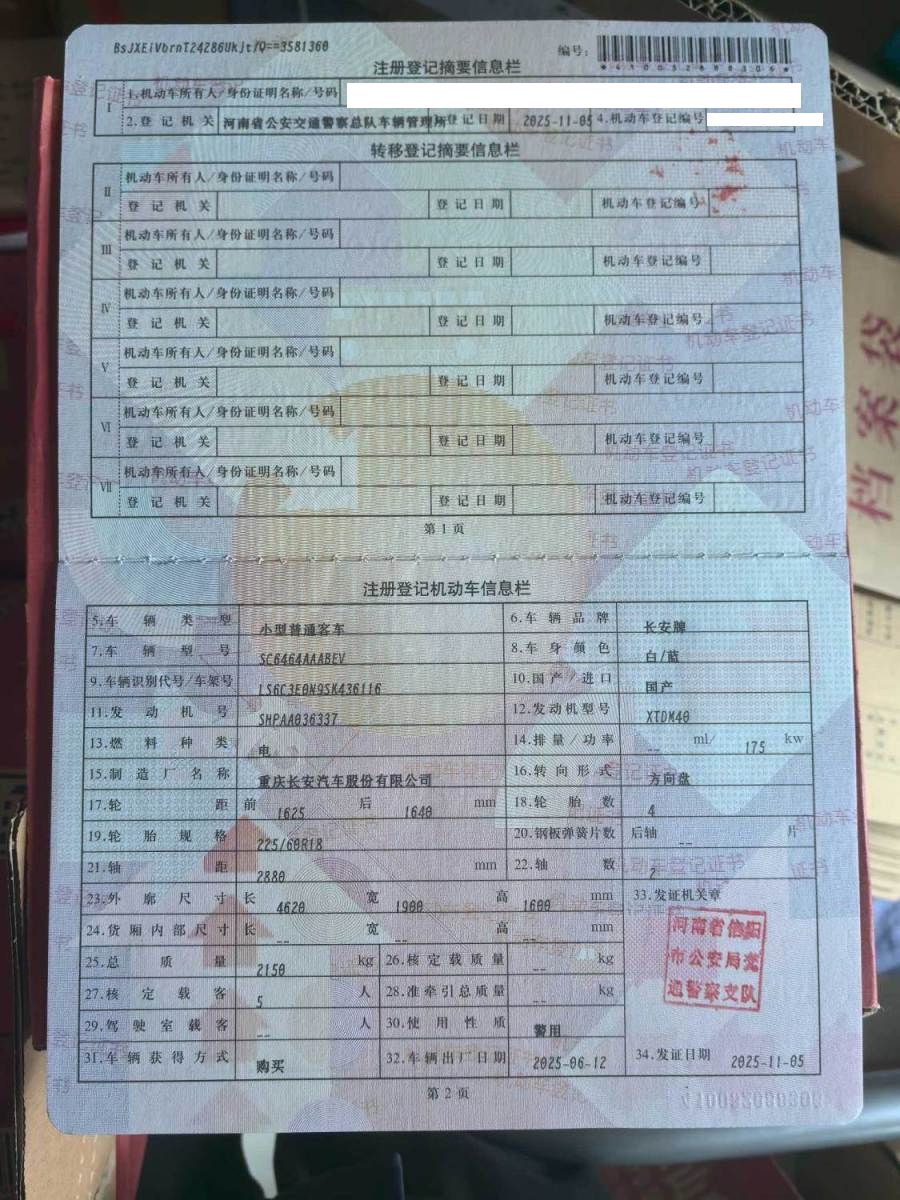 BsJXEiVbrnT24Z86Ukjt/Q==3581360
编号：
注册登记摘要信息栏
I 1.机动车所有人/身份证明名称/号码
2.登记机关 河南省公安交通警察总队车辆管理所 登记日期 2025-11-05 4.机动车登记编号
转移登记摘要信息栏
II 机动车所有人/身份证明名称/号码
登记机关 登记日期 机动车登记编号
III 机动车所有人/身份证明名称/号码
登记机关 登记日期 机动车登记编号
IV 机动车所有人/身份证明名称/号码
登记机关 登记日期 机动车登记编号
V 机动车所有人/身份证明名称/号码
登记机关 登记日期 机动车登记编号
VI 机动车所有人/身份证明名称/号码
登记机关 登记日期 机动车登记编号
VII 机动车所有人/身份证明名称/号码
登记机关 登记日期 机动车登记编号
第1页
注册登记机动车信息栏
5.车辆类型 小型普通客车 6.车辆品牌 长安牌
7.车辆型号 SC6464AAABEV 8.车身颜色 白/蓝
9.车辆识别代号/车架号 LS6C3E0N9SK436116 10.国产/进口 国产
11.发动机号 SHPAA036337 12.发动机型号 XTDM40
13.燃料种类 电 14.排量/功率 -- ml/ 175 kw
15.制造厂名称 重庆长安汽车股份有限公司 16.转向形式 方向盘
17.轮距 前 1625 后 1640 mm 18.轮胎数 4
19.轮胎规格 225/60R18 20.钢板弹簧片数 后轴 -- 片
21.轴距 2880 mm 22.轴数 2
23.外廓尺寸 长 4620 宽 1900 高 1600 mm 33.发证机关章
24.货厢内部尺寸 长 -- 宽 -- 高 -- mm
25.总质量 2150 kg 26.核定载质量 -- kg
27.核定载客 5 人 28.准牵引总质量 -- kg
河南省信阳
市公安局交
通警察支队
29.驾驶室载客 -- 人 30.使用性质 警用
31.车辆获得方式 购买 32.车辆出厂日期 2025-06-12 34.发证日期 2025-11-05
第2页
档案袋